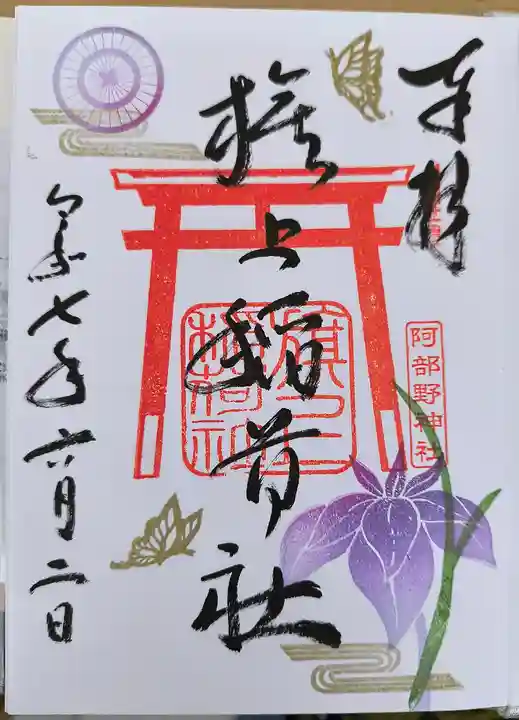 奉拝
阿部野神社
旗上稲荷社
旗上稲荷社
令和七年六月二日